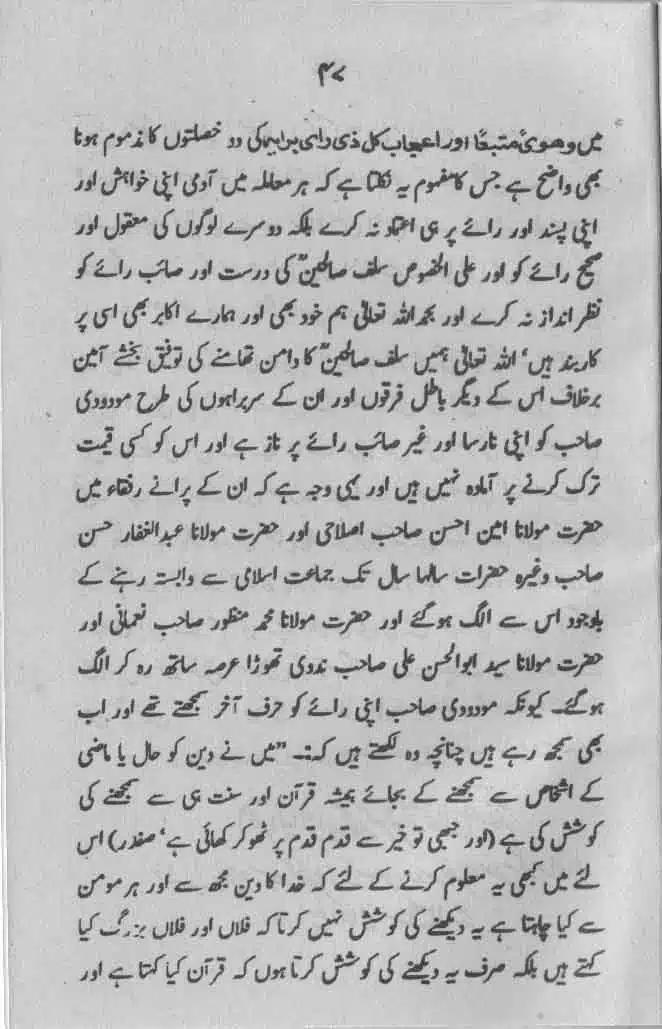 ۴۷
میں وھویً متبعًا اور اعجاب کل ذی رای برایہ کی دو خصلتوں کا مذموم ہونا
بھی واضح ہے جس کا مفہوم یہ نکلتا ہے کہ ہر معاملہ میں آدمی اپنی خواہش اور
اپنی پسند اور رائے پر ہی اعتماد نہ کرے بلکہ دوسرے لوگوں کی معقول اور
صحیح رائے کو اور علی الخصوص سلف صالحینؒ کی درست اور صائب رائے کو
نظر انداز نہ کرے اور بحمد اللہ تعالیٰ ہم خود بھی اور ہمارے اکابر بھی اسی پر
کاربند ہیں‘ اللہ تعالیٰ ہمیں سلف صالحینؒ کا دامن تھامنے کی توفیق بخشے آمین
برخلاف اس کے دیگر باطل فرقوں اور ان کے سربراہوں کی طرح مودودی
صاحب کو اپنی نارسا اور غیر صائب رائے پر ناز ہے اور اس کو کسی قیمت
ترک کرنے پر آمادہ نہیں ہیں اور یہی وجہ ہے کہ ان کے پرانے رفقاء میں
حضرت مولانا امین احسن صاحب اصلاحی اور حضرت مولانا عبدالغفار حسن
صاحب وغیرہ حضرات سالہا سال تک جماعت اسلامی سے وابستہ رہنے کے
باوجود اس سے الگ ہوگئے اور حضرت مولانا محمد منظور صاحب نعمانی اور
حضرت مولانا سید ابوالحسن علی صاحب ندوی تھوڑا عرصہ ساتھ رہ کر الگ
ہوگئے۔ کیونکہ مودودی صاحب اپنی رائے کو حرف آخر سمجھتے تھے اور اب
بھی سمجھ رہے ہیں چنانچہ وہ لکھتے ہیں کہ:۔ ”میں نے دین کو حال یا ماضی
کے اشخاص سے سمجھنے کے بجائے ہمیشہ قرآن اور سنت ہی سے سمجھنے کی
کوشش کی ہے (اور جبھی تو خیر سے قدم قدم پر ٹھوکر کھائی ہے‘ صفدر) اس
لئے میں کبھی یہ معلوم کرنے کے لئے کہ خدا کا دین مجھ سے اور ہر مومن
سے کیا چاہتا ہے یہ دیکھنے کی کوشش نہیں کرتا کہ فلاں اور فلاں بزرگ کیا
کہتے ہیں بلکہ صرف یہ دیکھنے کی کوشش کرتا ہوں کہ قرآن کیا کہتا ہے اور